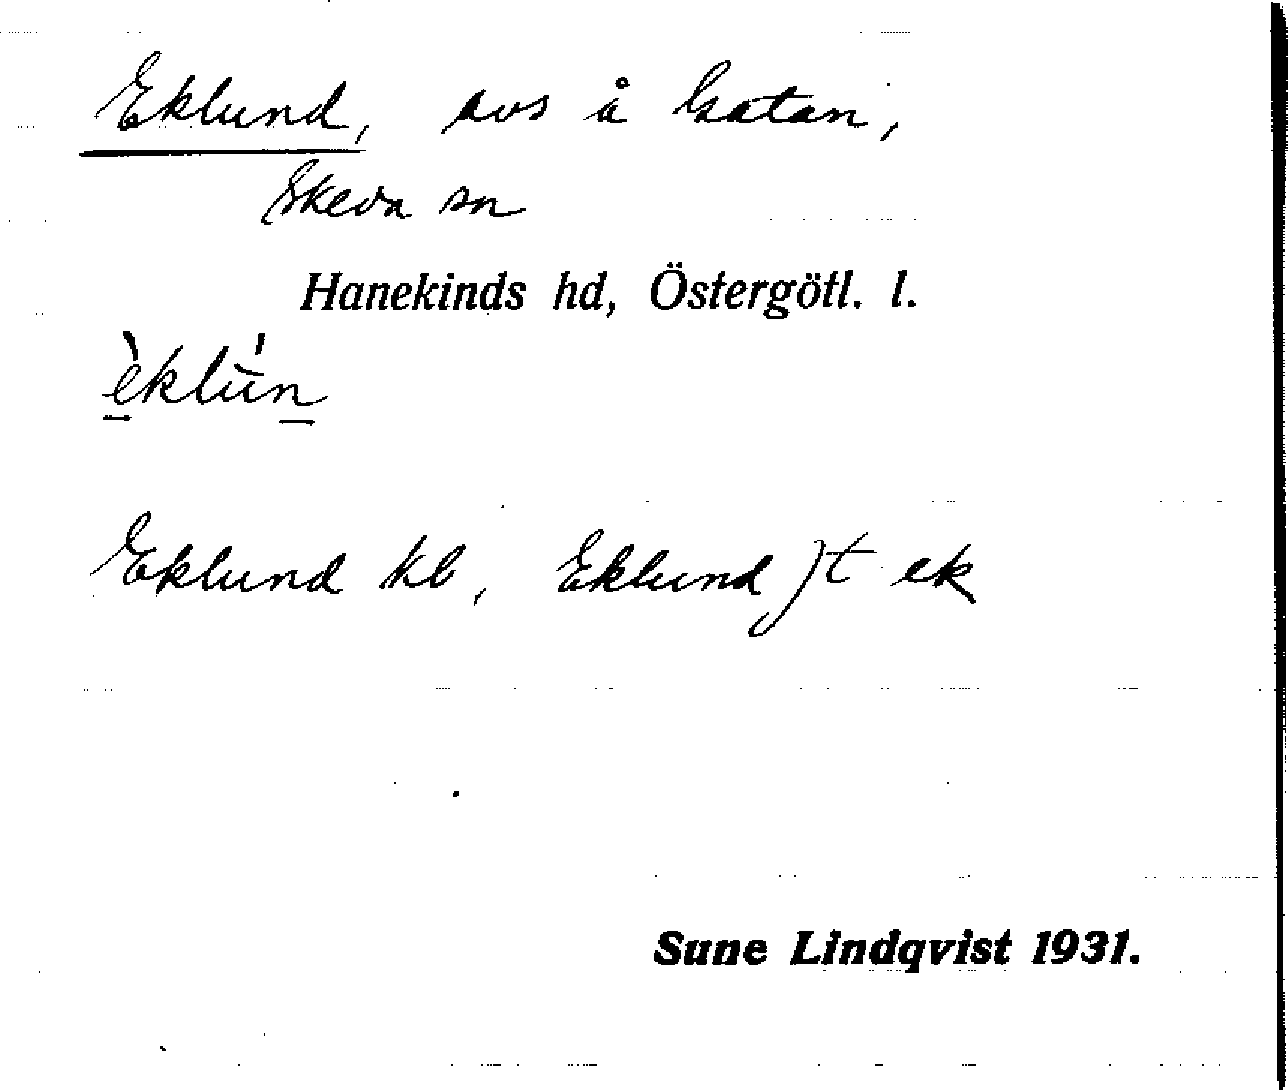 Eklund, avs å Gatan,
Skeda sn
Hanekinds hd, Östergötl. l.
èklùn
Eklund kb, Eklund jt ek
Sune Lindqvist 1931.